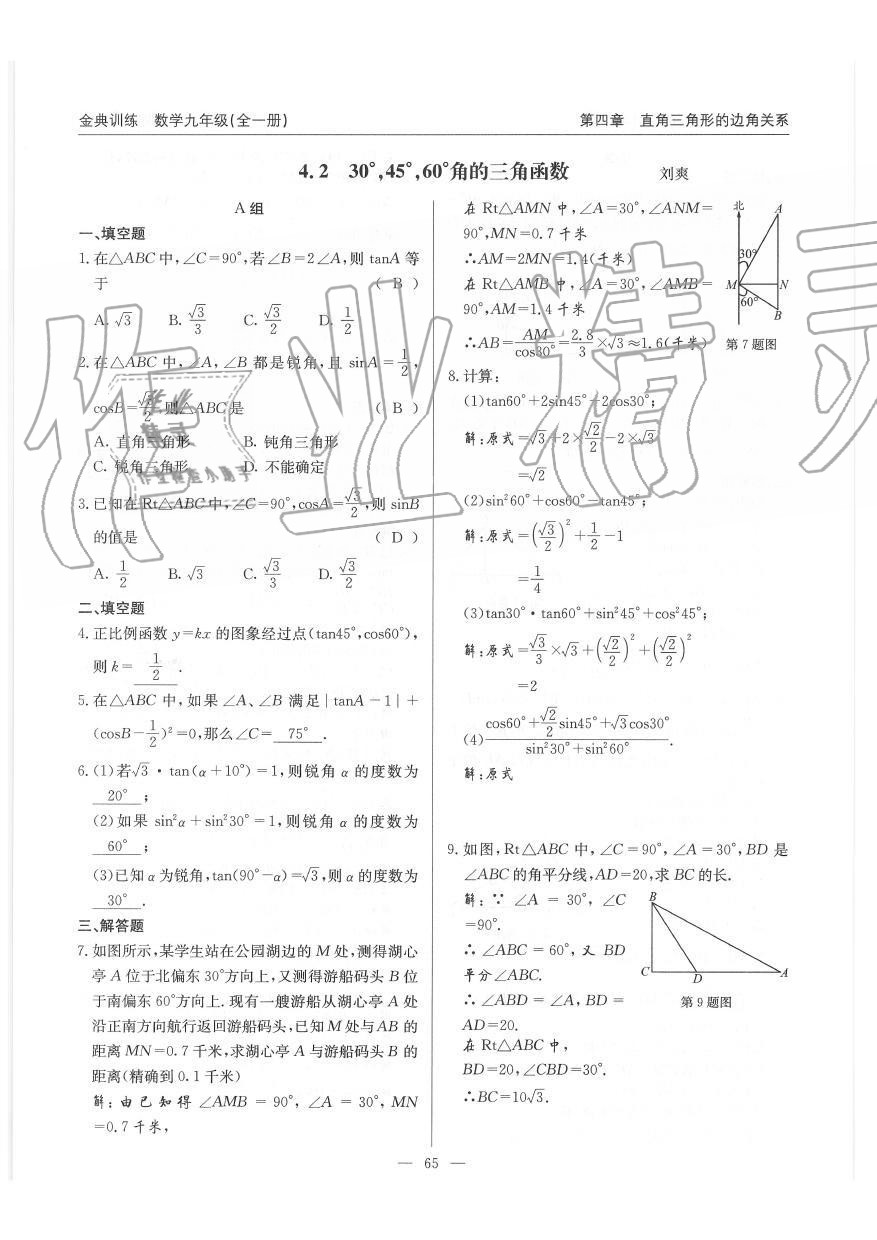 金典训练 数学九年级(全一册)
第四章 直角三角形的边角关系
4.2 30°,45°,60°角的三角函数 刘爽
A组
一、填空题
1.在△ABC中,∠C=90°,若∠B=2∠A,则 tanA 等
于 ( B )
A. √3 B. √3/3 C. √3/2 D. 1/2
2.在△ABC 中,∠A,∠B 都是锐角,且 sinA=1/2,
cosB=√3/2,则△ABC是 ( B )
A. 直角三角形 B. 钝角三角形
C. 锐角三角形 D. 不能确定
3.已知在 Rt△ABC中,∠C=90°,cosA=√3/2,则 sinB
的值是 ( D )
A. 1/2 B. √3 C. √3/3 D. √3/2
二、填空题
4.正比例函数 y=kx 的图象经过点(tan45°,cos60°),
则 k= 1/2 .
5.在△ABC 中,如果 ∠A、∠B 满足|tanA-1|+
(cosB-1/2)²=0,那么∠C= 75° .
6.(1)若√3·tan(α+10°)=1,则锐角 α 的度数为
20° ;
(2)如果 sin²α+sin²30°=1,则锐角 α 的度数为
60° ;
(3)已知α为锐角,tan(90°-α)=√3,则α的度数为
30° .
三、解答题
7.如图所示,某学生站在公园湖边的 M 处,测得湖心
亭 A 位于北偏东 30°方向上,又测得游船码头 B 位
于南偏东 60°方向上.现有一艘游船从湖心亭 A 处
沿正南方向航行返回游船码头,已知 M 处与AB 的
距离 MN=0.7 千米,求湖心亭 A 与游船码头 B 的
距离(精确到 0.1 千米)
解:由已知得 ∠AMB = 90°, ∠A = 30°, MN
=0.7 千米,
在 Rt△AMN 中,∠A=30°,∠ANM=
90°,MN=0.7 千米
∴AM=2MN=1.4(千米)
在 Rt△AMB 中,∠A=30°,∠AMB=
90°,AM=1.4 千米
∴AB=AM/cos30°=2.8/3×√3≈1.6(千米)
北
A
30°
M
N
60°
B
第 7 题图
8.计算:
(1)tan60°+2sin45°-2cos30°;
解:原式=√3+2×√2/2-2×√3/2
=√2
(2)sin²60°+cos60°-tan45°;
解:原式=(√3/2)²+1/2-1
=1/4
(3)tan30°·tan60°+sin²45°+cos²45°;
解:原式=√3/3×√3+(√2/2)²+(√2/2)²
=2
(4)(cos60°+√2/2 sin45°+√3cos30°)/(sin²30°+sin²60°).
解:原式
9.如图,Rt△ABC 中,∠C=90°,∠A=30°,BD 是
∠ABC的角平分线,AD=20,求 BC 的长.
解:∵ ∠A = 30°, ∠C
=90°.
∴ ∠ABC = 60°, 又 BD
平分∠ABC.
∴ ∠ABD = ∠A, BD =
AD=20.
在 Rt△ABC 中,
BD=20,∠CBD=30°.
∴BC=10√3.
B
C
D
A
第 9 题图
— 65 —
作业精灵